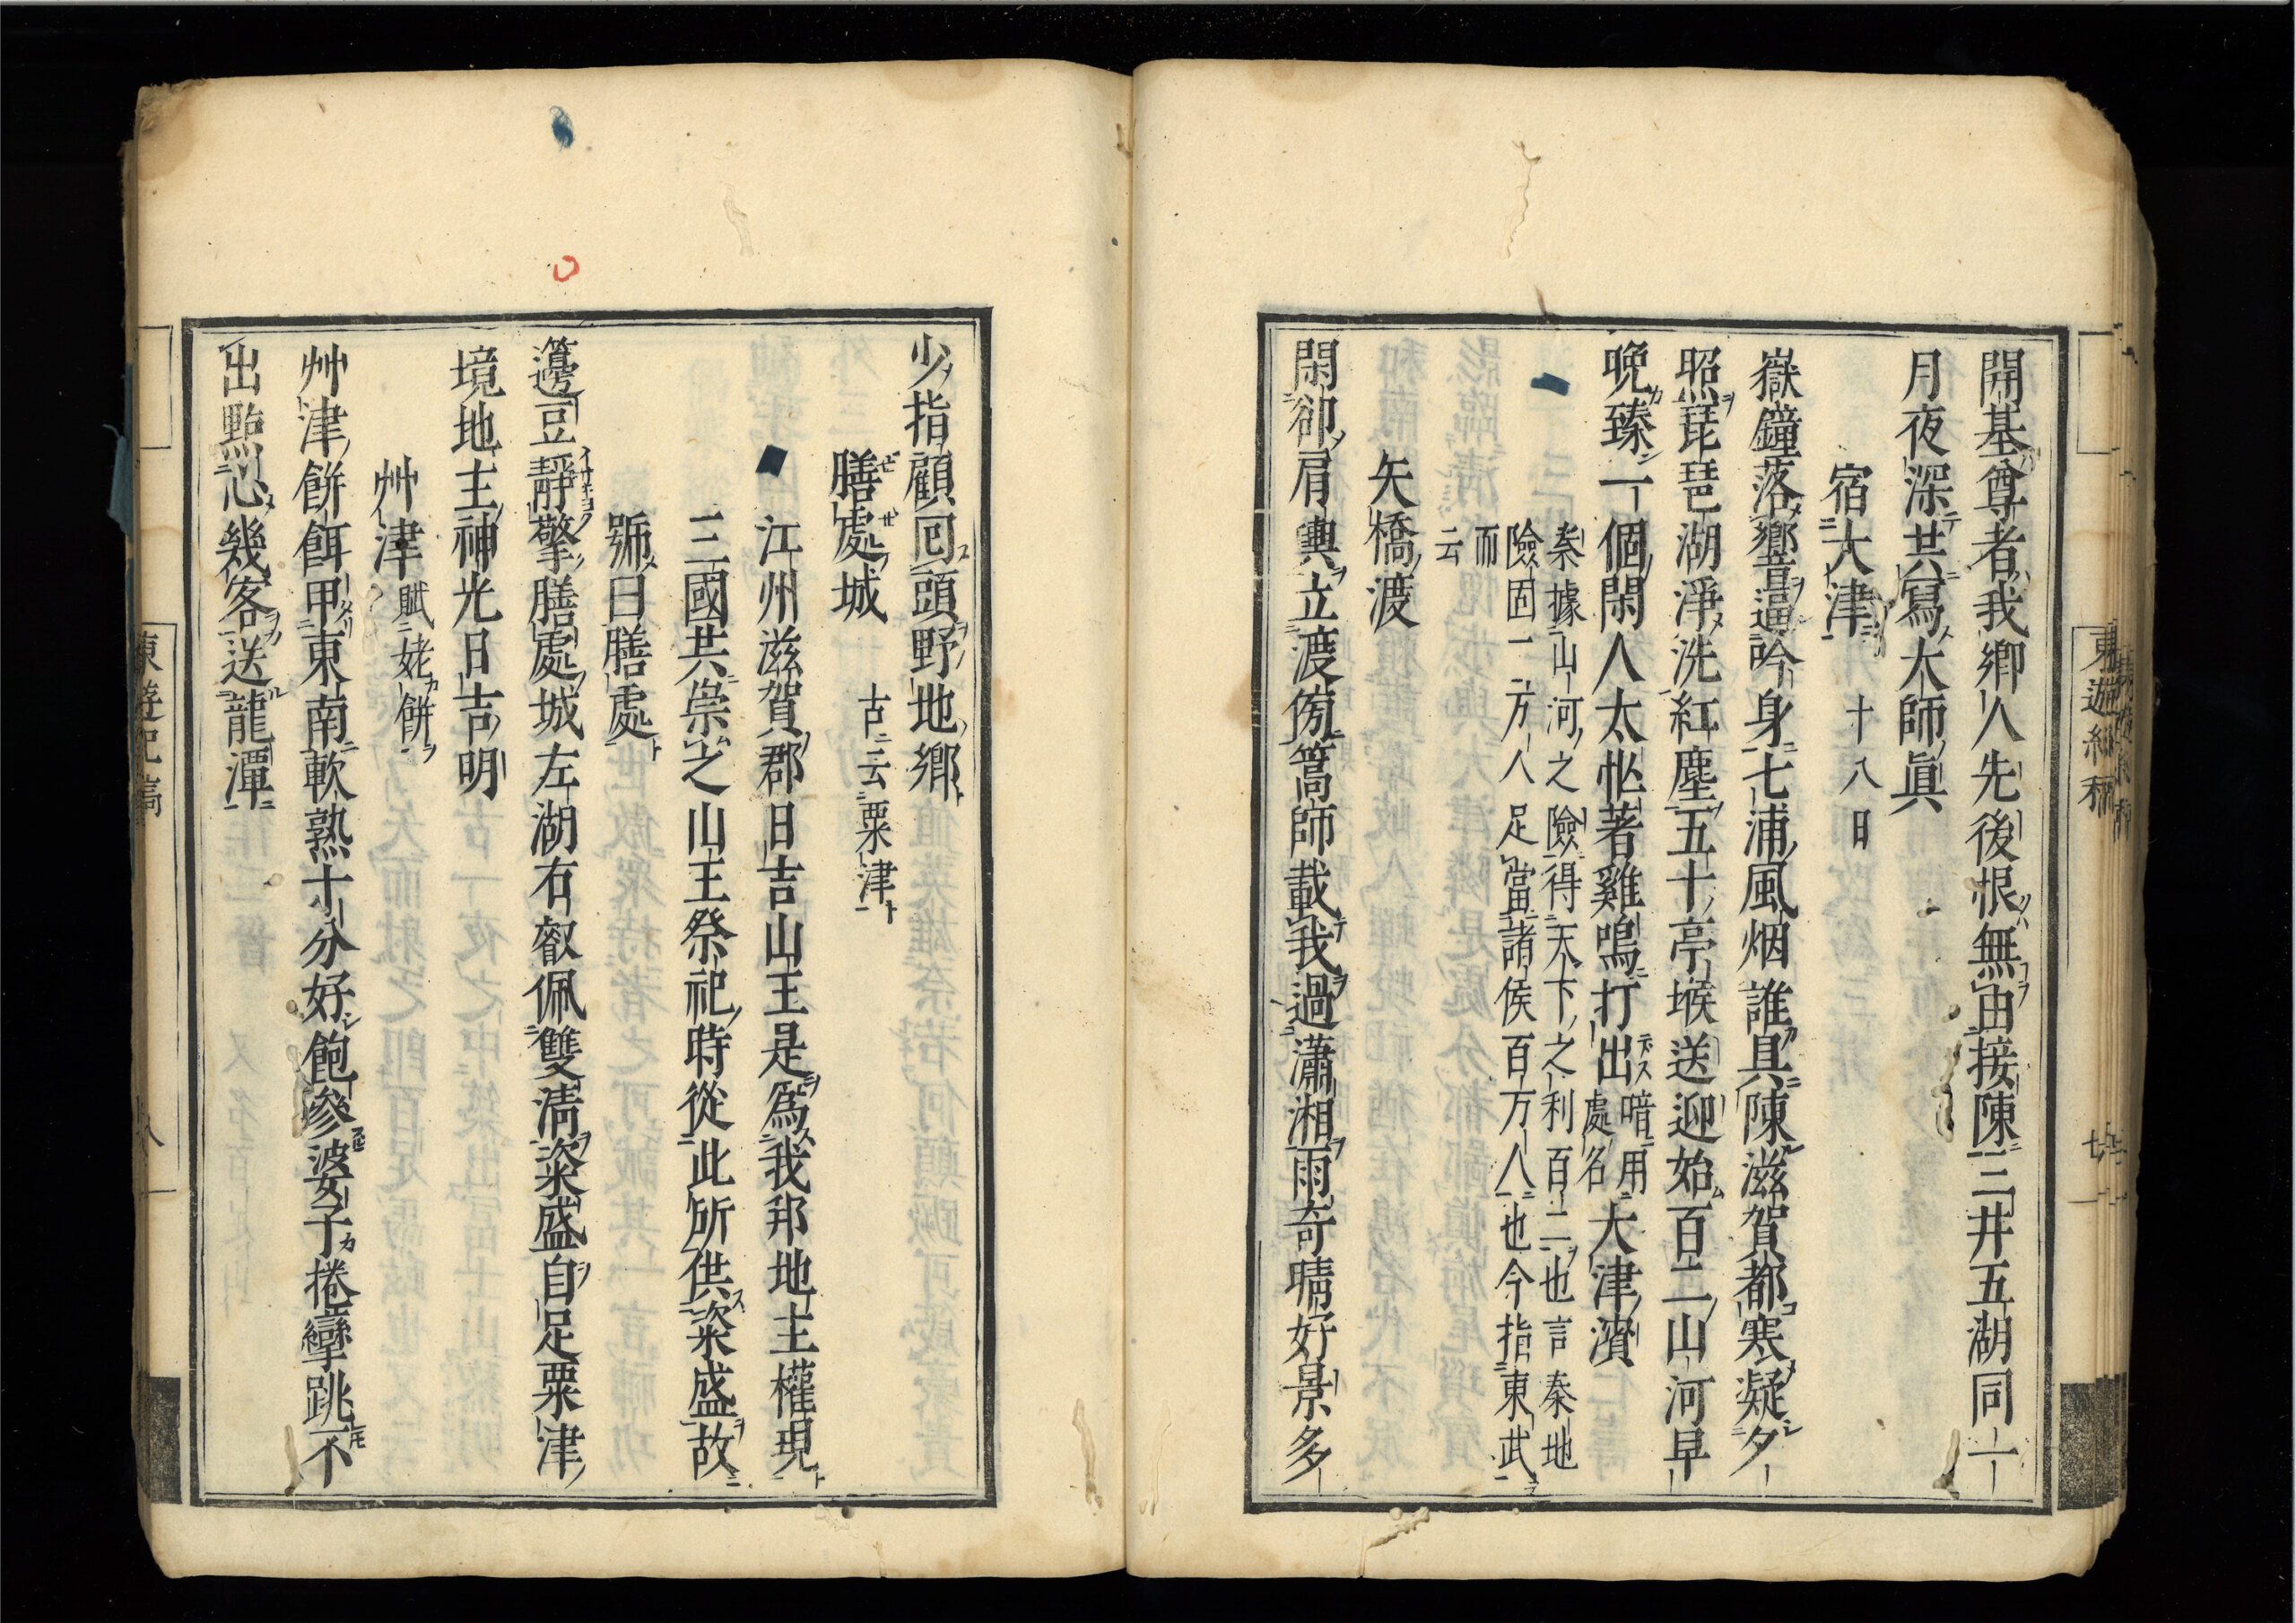 開基尊者我鄉人先後恨無由接陳三井五湖同一
月夜深共寫大師眞
宿大津 十八日
嶽鐘落響逼吟身七浦風烟誰具陳滋賀都寒凝夕
照琵琶湖淨洗紅塵五十亭堠送迎始百二山河早
晚臻一個閑人太忙著雞鳴打出大津濱
暗用
處名
秦據山河之險得天下之利百二也言秦地
險固二万人足當諸侯百万人也今指東武
而
云
矢橋渡
閑卻肩輿立渡傍篙師載我過瀟湘雨奇晴好景多
東遊紀稿 七
少指顧回頭野地鄉
膳處城 古云粟津
江州滋賀郡日吉山王是爲我邦地主權現
三國共崇之山王祭祀時從此所供粢盛故
號曰膳處
籩豆靜擎膳處城左湖右叡佩雙淸粢盛自足粟津
境地主神光日吉明
艸津 賦姥餅
艸津餅餌甲東南軟熟十分好飽參婆子捲攣跳不
出點心幾客送龍潭
東遊紀稿 八